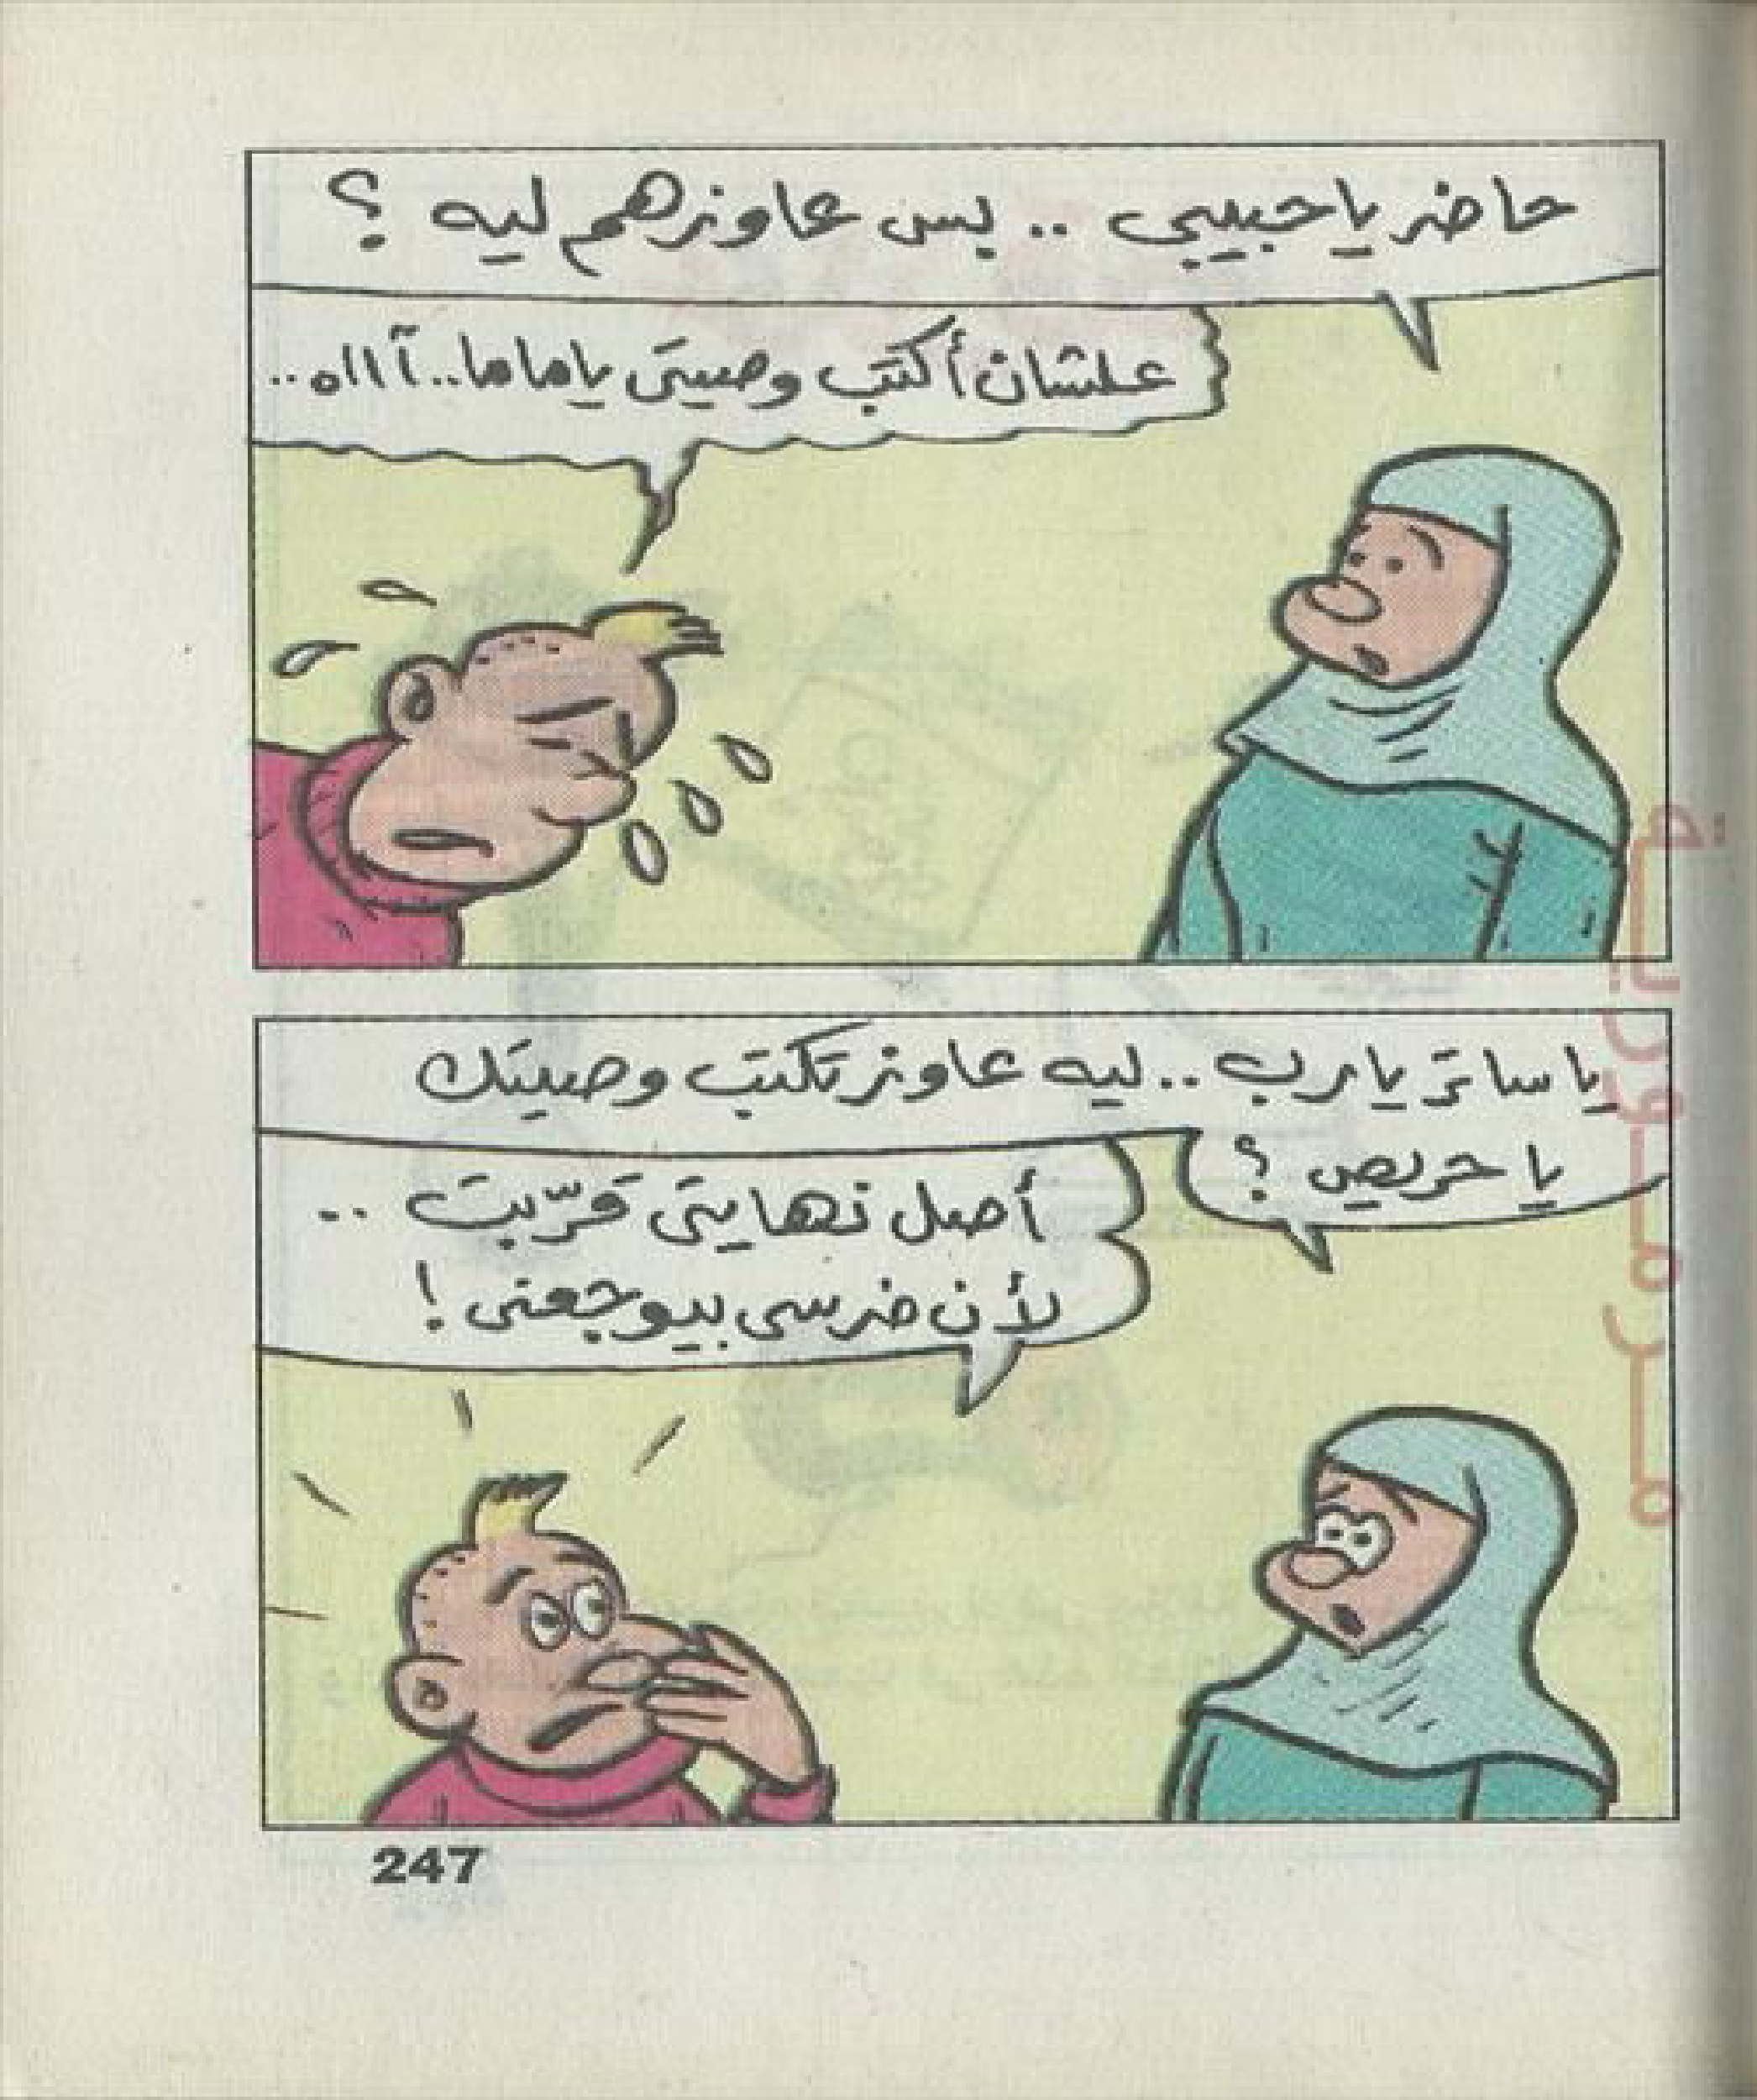 حاضر ياحبيبي .. بس عاوزهم ليه ؟
علشان أكتب وصيتى ياماما..آااه..
يا ساتر يارب..ليه عاوز تكتب وصيتك
يا حريص ؟
أصل نهايتى قرّبت ..
لأن ضرسى بيوجعنى !
247